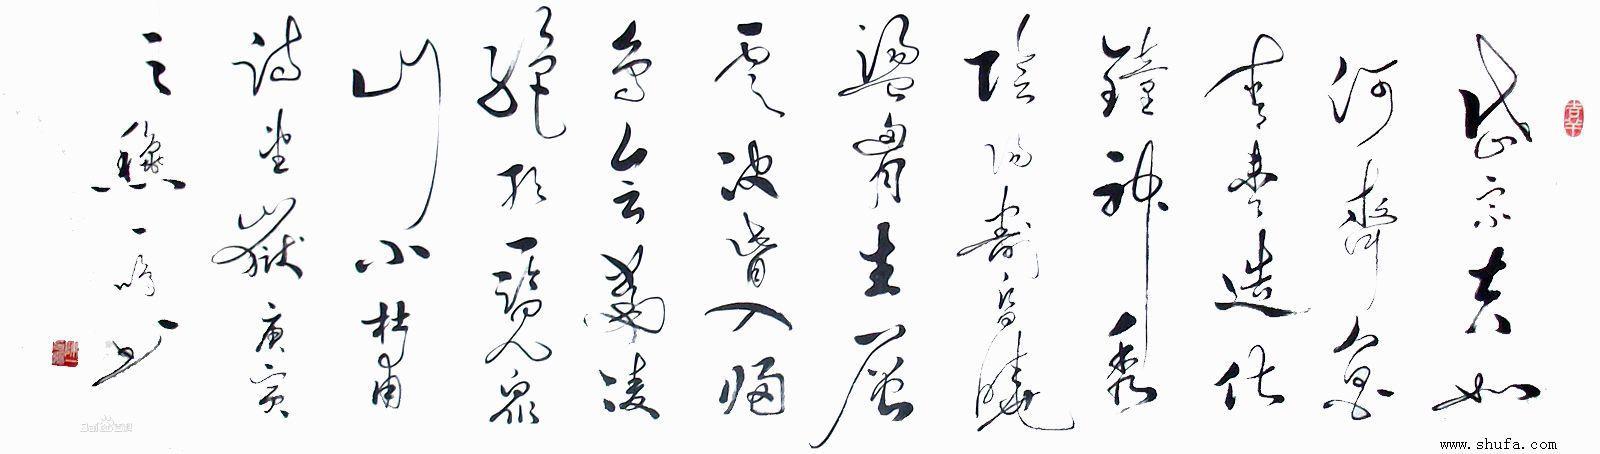 岱宗夫如
何齊魯
青未了造化
鐘神秀
陰陽割昏曉
盪胸生層
雲決眥入歸
鳥會當凌
絕頂一覽眾
山小杜甫
詩望嶽庚寅
之秋一峰書
www.shufa.com